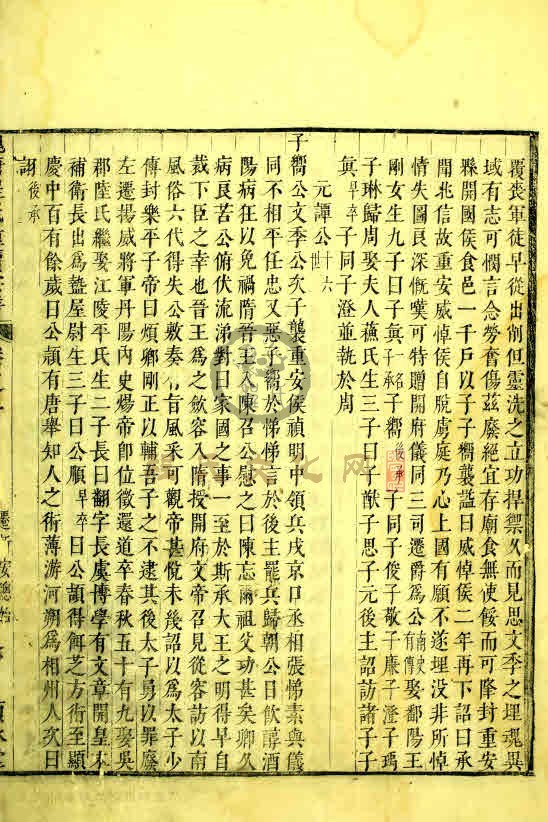 覆喪軍徒早從出削但靈洗之立功捍禦久而見思文季之埋魂異
域有志可憫言念勞舊傷茲廢絕宜存廟食無使餒而可降封重安
縣開國侯食邑一千戶以子子嚮襲謚曰威悼侯二年再下詔曰承
聞兆信故重安威悼侯自脫虜庭乃心上國有願不遂埋沒非所悼
情失圖良深慨嘆可特贈開府儀同三司遷爵爲公娶鄱陽王
剛女生九子曰子眞一名子承子嚮後承子同子俊子敬子廉子澄子瑀
子琳歸周娶夫人蘓氏生三子曰子猷子思子元後主詔訪諸子子
眞早卒子同子澄並執於周
元譚公十六世
子嚮公文季公次子襲重安侯禎明中領兵戍京口丞相張悌素與儀
同不相平任忠又惡子嚮於悌悌言於後主罷兵歸朝公日飲醇酒
陽病狂以免禍隋晉王入陳召公慰之曰陳忘爾祖父功甚矣卿久
病良苦公俯伏流涕對曰家國之事一至於斯承大王之明得早自
裁下臣之幸也晉王爲之斂容入隋授開府文帝召見從容訪以南
風俗六代得失公敷奏有旨風采可觀帝甚悅未幾詔以爲太子少
傳封樂平子帝曰煩卿剛正以輔吾子之不逮其後太子勇以罪廢
左遷揚威將軍丹陽內史煬帝卽位徵還道卒春秋五十有九娶吳
郡陸氏繼娶江陵平氏生二子長曰翻字長虞博學有文章開皇本
補衛長出爲盩屋尉生三子曰公順早卒曰公頡得餌芝方術至顯
慶中百有餘歲曰公頡有唐舉知人之術薄游河朔爲相州人次曰
詡後承